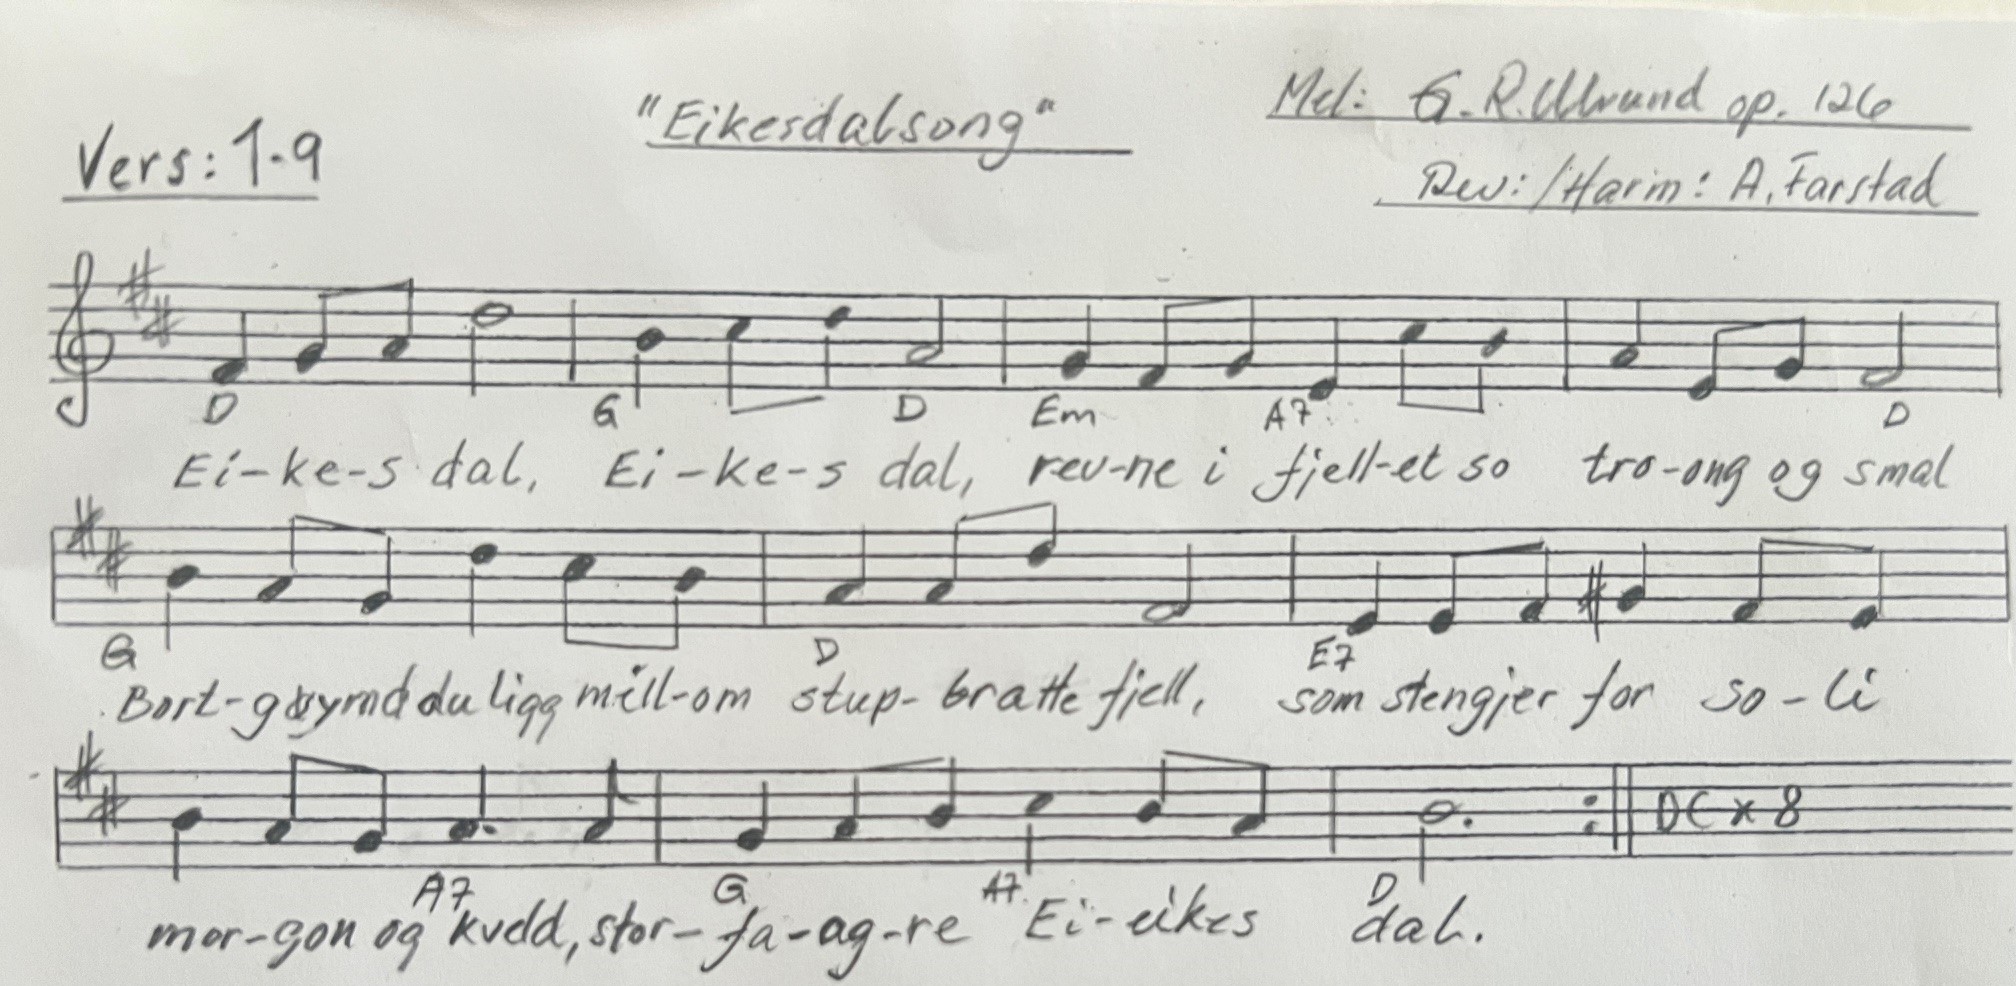 Vers: 1-9
"Eikesdalsong"
Mel: G. R. Ulvund op. 126
Rev: /Harm: A. Farstad
D G D Em A7 D
Ei-ke-s dal, Ei-ke-s dal, rev-ne i fjell-et so tro-ong og smal
G D E7
Bort-gøymd du ligg mill-om stup-bratte fjell, som stengjer for so-li
A7 G A7 D
mor-gon og kveld, stor-fa-ag-re Ei-eikes dal.
DC x 8